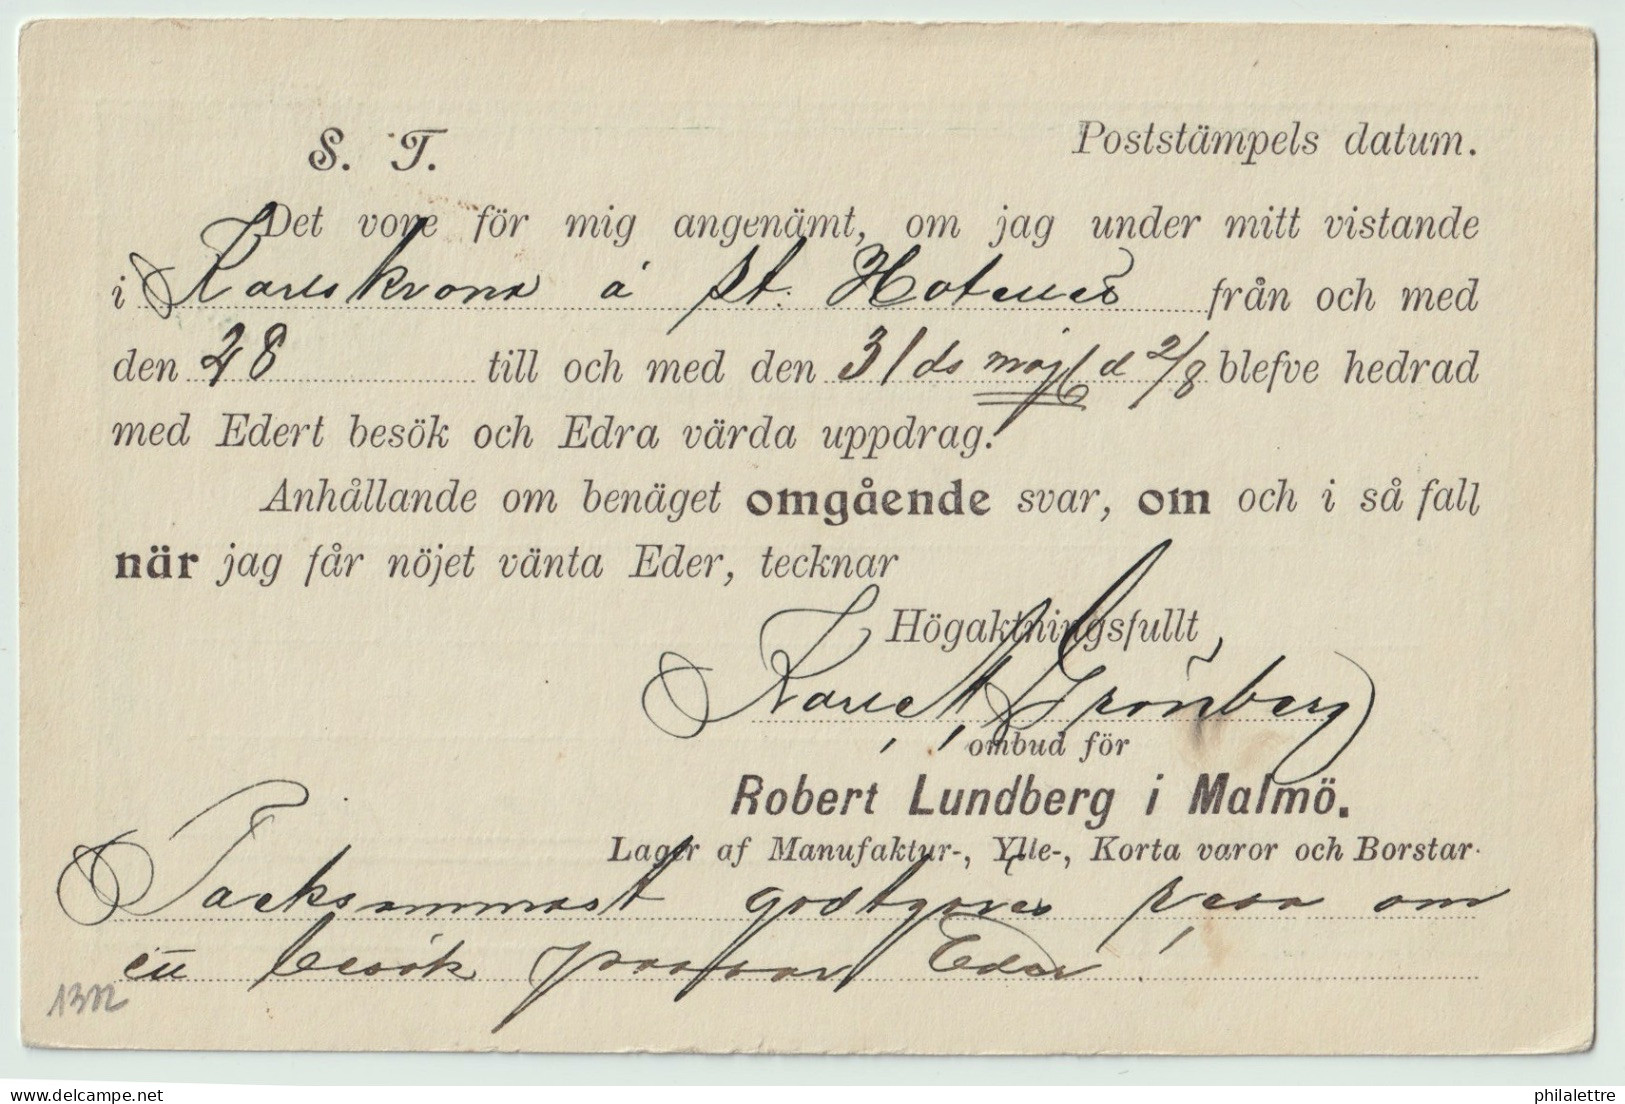 S. T.
Poststämpels datum.
Det vore för mig angenämt, om jag under mitt vistande
i Karlskrona å st. Hotellet från och med
den 28 till och med den 31 ds möjl d 2/8 blefve hedrad
med Edert besök och Edra värda uppdrag.
Anhållande om benäget omgående svar, om och i så fall
när jag får nöjet vänta Eder, tecknar
Högaktningsfullt
Grönberg
ombud för
Robert Lundberg i Malmö.
Lager af Manufaktur-, Ylle-, Korta varor och Borstar.
Tacksammast godtgöres resa om
ett besök passar Eder!
1372
philalettre